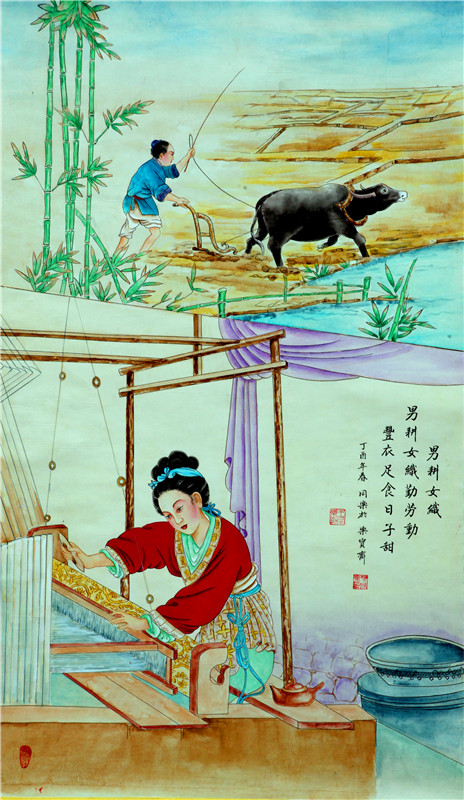 男耕女織
男耕女織勤勞動
豐衣足食日子甜
丁酉年春 同樂於 樂寶齋